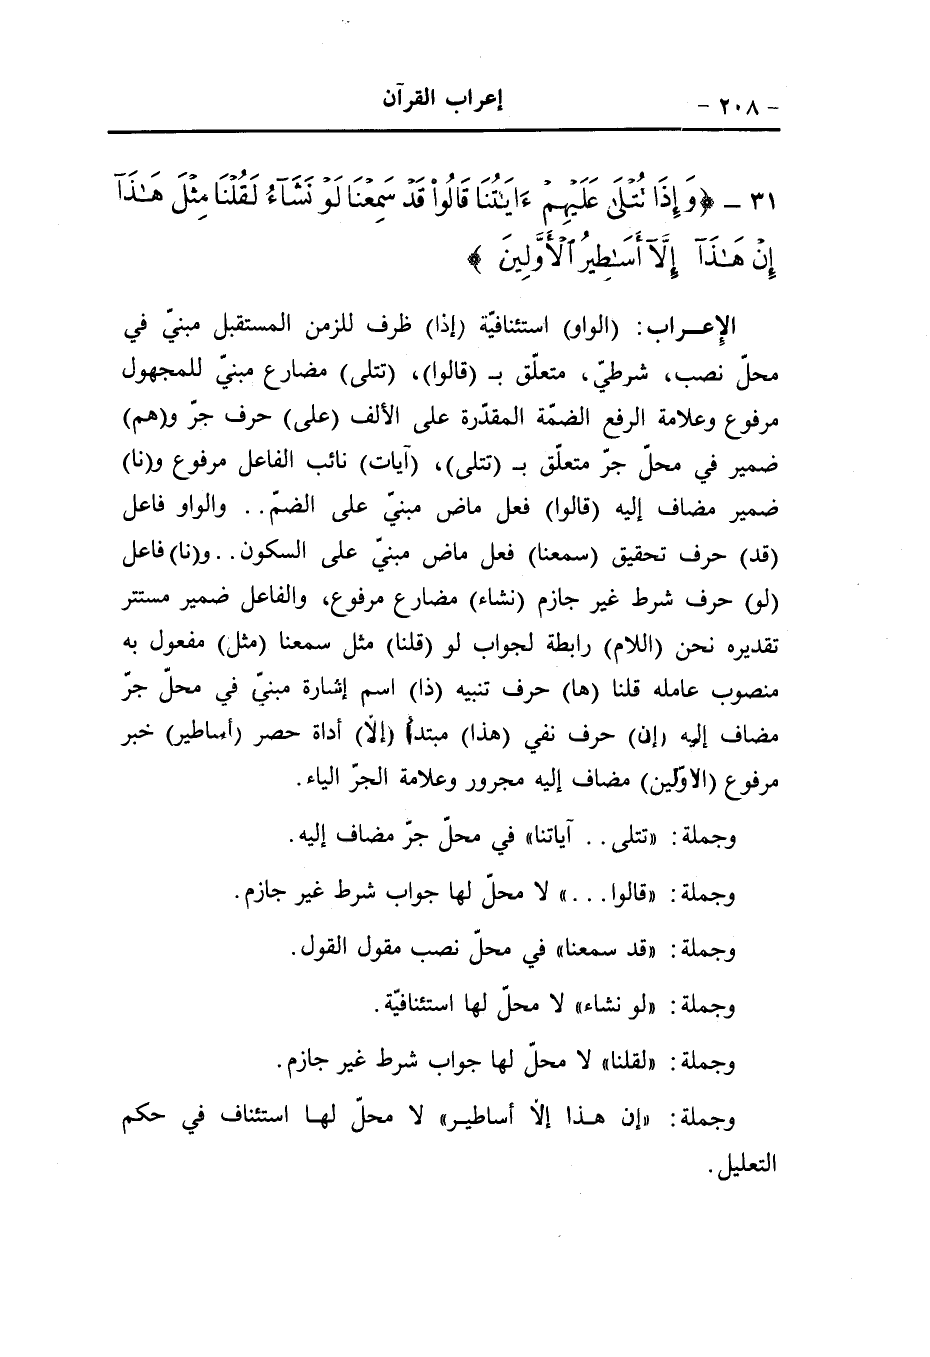 - ٢٠٨ - إعراب القرآن
٣١ - ﴿وَإِذَا تُتْلَىٰ عَلَيْهِمْ ءَايَٰتُنَا قَالُوا۟ قَدْ سَمِعْنَا لَوْ نَشَآءُ لَقُلْنَا مِثْلَ هَٰذَآ
إِنْ هَٰذَآ إِلَّآ أَسَٰطِيرُ ٱلْأَوَّلِينَ﴾
الإعـراب: (الواو) استئنافيّة (إذا) ظرف للزمن المستقبل مبنيّ في
محلّ نصب، شرطيّ، متعلّق بـ (قالوا)، (تتلى) مضارع مبنيّ للمجهول
مرفوع وعلامة الرفع الضمّة المقدّرة على الألف (على) حرف جرّ و(هم)
ضمير في محلّ جرّ متعلّق بـ (تتلى)، (آيات) نائب الفاعل مرفوع و(نا)
ضمير مضاف إليه (قالوا) فعل ماض مبنيّ على الضمّ.. والواو فاعل
(قد) حرف تحقيق (سمعنا) فعل ماض مبنيّ على السكون.. و(نا) فاعل
(لو) حرف شرط غير جازم (نشاء) مضارع مرفوع، والفاعل ضمير مستتر
تقديره نحن (اللام) رابطة لجواب لو (قلنا) مثل سمعنا (مثل) مفعول به
منصوب عامله قلنا (ها) حرف تنبيه (ذا) اسم إشارة مبنيّ في محلّ جرّ
مضاف إليه (إن) حرف نفي (هذا) مبتدأ (إلّا) أداة حصر (أساطير) خبر
مرفوع (الاوّلين) مضاف إليه مجرور وعلامة الجرّ الياء.
وجملة: «تتلى.. آياتنا» في محلّ جرّ مضاف إليه.
وجملة: «قالوا...» لا محلّ لها جواب شرط غير جازم.
وجملة: «قد سمعنا» في محلّ نصب مقول القول.
وجملة: «لو نشاء» لا محلّ لها استئنافيّة.
وجملة: «لقلنا» لا محلّ لها جواب شرط غير جازم.
وجملة: «إن هـذا إلّا أساطيـر» لا محلّ لهـا استئناف في حكم
التعليل.